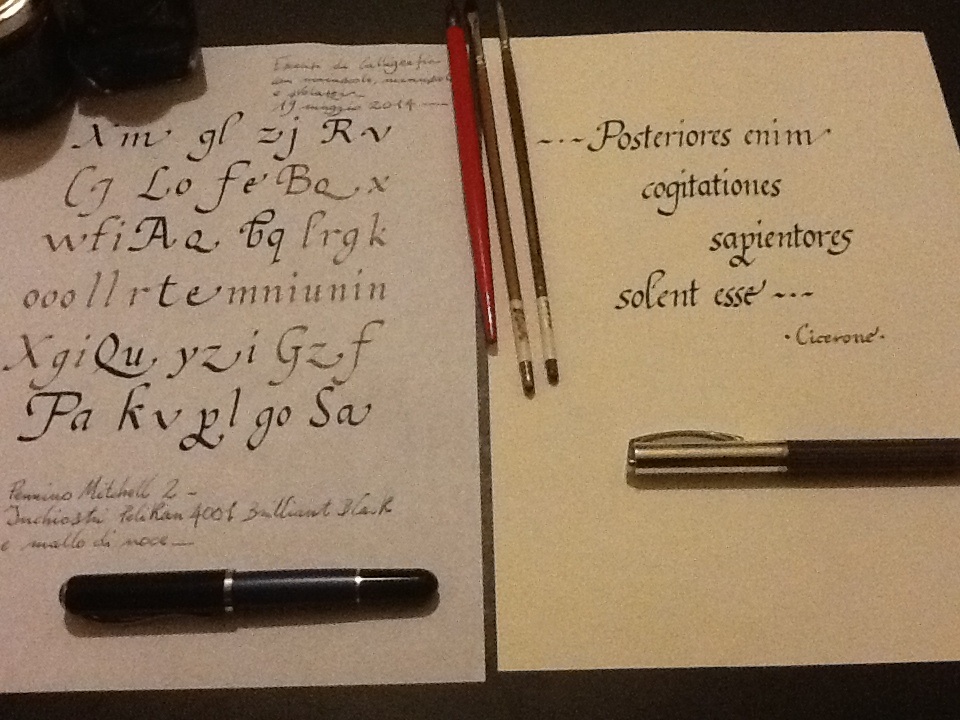 Esercizi di Calligrafia
con minuscole, maiuscole
e
19 maggio 2014
Xm gl zj Rv
Cj Lo fe Ba x
wfi Aa bq lrgk
ooollrte mniunin
Xgi Qu yzi Gzf
Pa kv pl go Sa
Pennino Mitchell 2 -
Inchiostri Pelikan 4001 Brilliant Black
e mallo di noce
--- Posteriores enim
cogitationes
sapientores
solent esse ---
· Cicerone ·